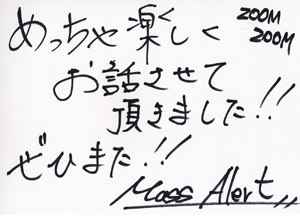 めっちゃ楽しく
ZOOM
ZOOM
お話させて
頂きました!!
ぜひまた!!
Mass Alert